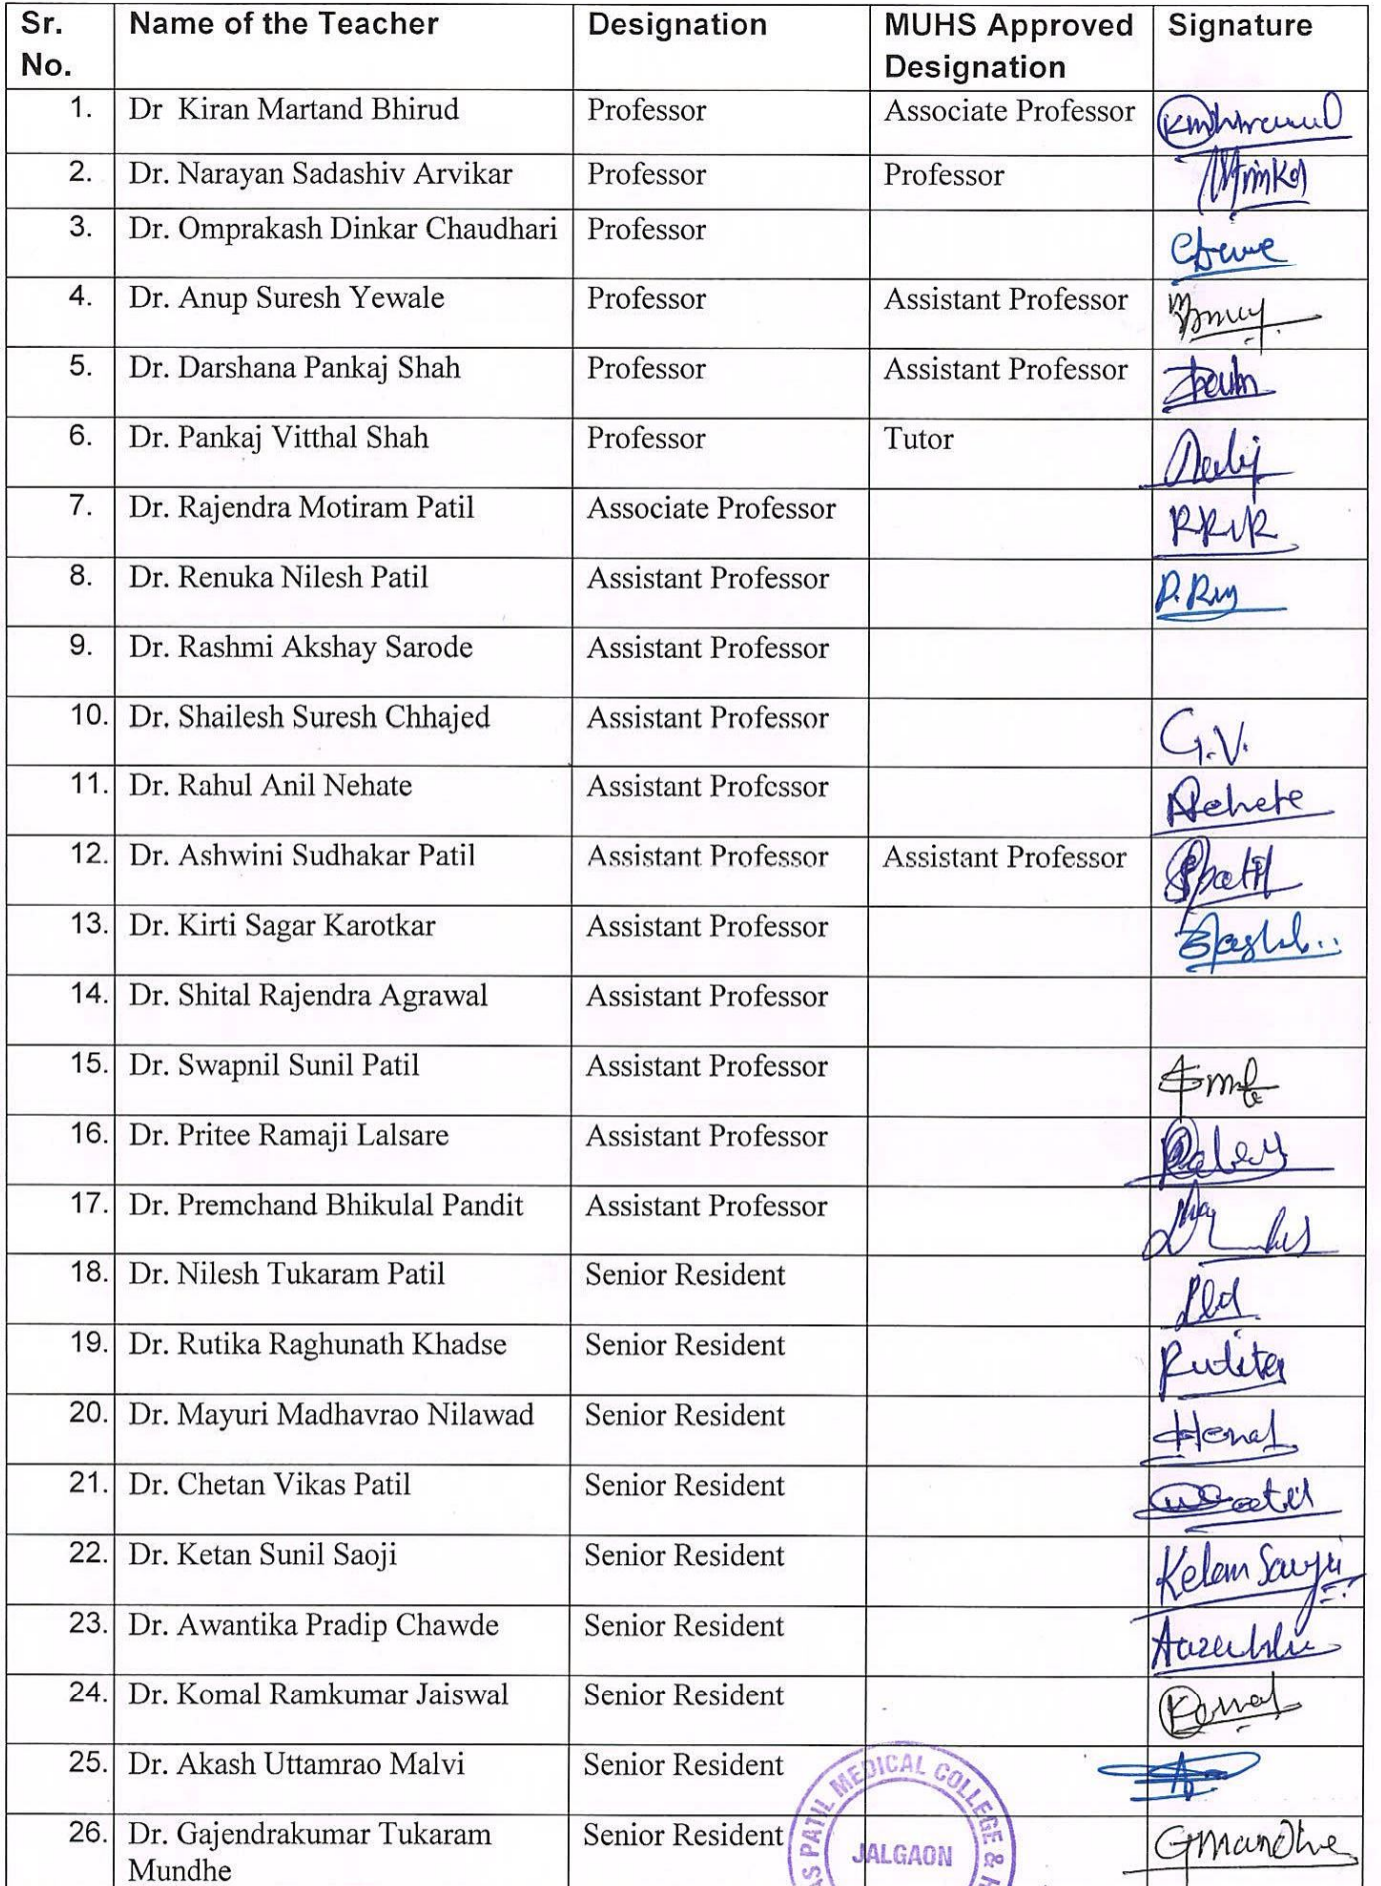 Sr. No. Name of the Teacher Designation MUHS Approved Designation Signature
1. Dr Kiran Martand Bhirud Professor Associate Professor
2. Dr. Narayan Sadashiv Arvikar Professor Professor
3. Dr. Omprakash Dinkar Chaudhari Professor
4. Dr. Anup Suresh Yewale Professor Assistant Professor
5. Dr. Darshana Pankaj Shah Professor Assistant Professor
6. Dr. Pankaj Vitthal Shah Professor Tutor
7. Dr. Rajendra Motiram Patil Associate Professor
8. Dr. Renuka Nilesh Patil Assistant Professor
9. Dr. Rashmi Akshay Sarode Assistant Professor
10. Dr. Shailesh Suresh Chhajed Assistant Professor G.V.
11. Dr. Rahul Anil Nehate Assistant Professor Nehete
12. Dr. Ashwini Sudhakar Patil Assistant Professor Assistant Professor
13. Dr. Kirti Sagar Karotkar Assistant Professor
14. Dr. Shital Rajendra Agrawal Assistant Professor
15. Dr. Swapnil Sunil Patil Assistant Professor
16. Dr. Pritee Ramaji Lalsare Assistant Professor
17. Dr. Premchand Bhikulal Pandit Assistant Professor
18. Dr. Nilesh Tukaram Patil Senior Resident
19. Dr. Rutika Raghunath Khadse Senior Resident
20. Dr. Mayuri Madhavrao Nilawad Senior Resident
21. Dr. Chetan Vikas Patil Senior Resident
22. Dr. Ketan Sunil Saoji Senior Resident
23. Dr. Awantika Pradip Chawde Senior Resident
24. Dr. Komal Ramkumar Jaiswal Senior Resident
25. Dr. Akash Uttamrao Malvi Senior Resident
26. Dr. Gajendrakumar Tukaram Mundhe Senior Resident GMundhe
PATIL MEDICAL COLLEGE &
JALGAON